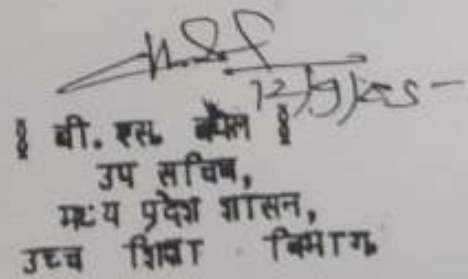 ( बी. एस. बघेल )
उप सचिव,
मध्य प्रदेश शासन,
उच्च शिक्षा विभाग